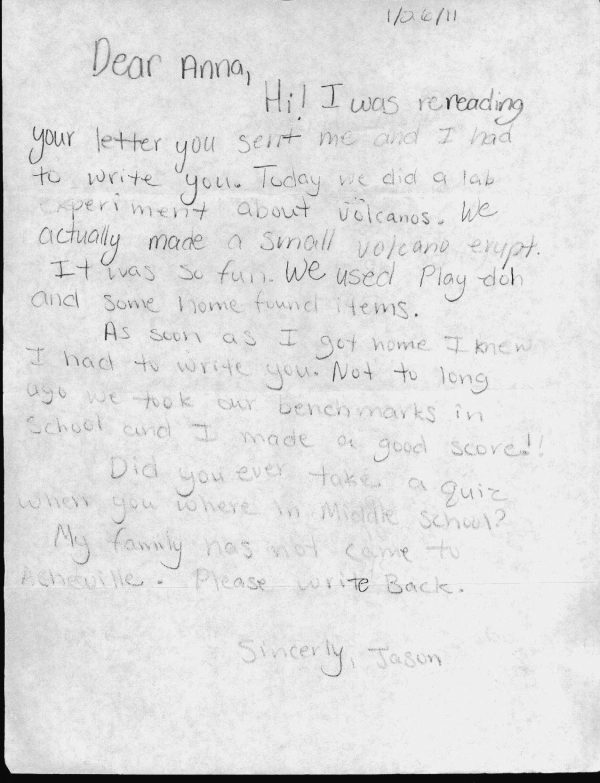 1/26/11
Dear Anna,
Hi! I was rereading
your letter you sent me and I had
to write you. Today we did a lab
experiment about volcanos. We
actually made a small volcano erupt.
It was so fun. We used Play-doh
and some home found items.
As soon as I got home I knew
I had to write you. Not to long
ago we took our benchmarks in
School and I made a good score!!
Did you ever take a quiz
when you where in Middle school?
My family has not came to
Asheville. Please write Back.
Sincerly, Jason